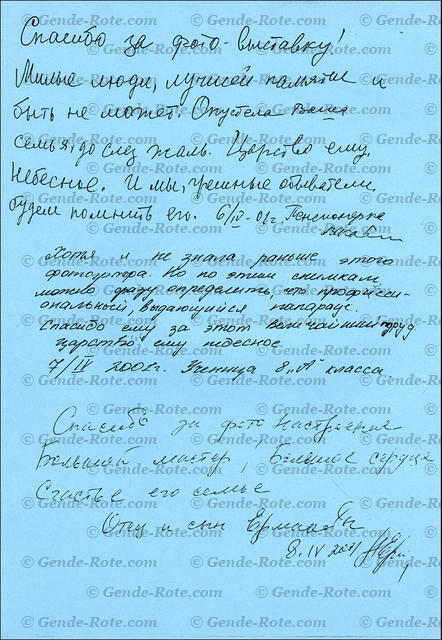 Спасибо за фото-выставку!
Милые люди, лучшей памяти и
быть не может. Опустела Ваша
семья, до слез жаль. Царство ему
Небесное. И мы, грешные обыватели,
будем помнить его. 6/IV-01г. Пенсионерка
Хотя я не знала раньше этого
фотоаўтора. Но по этим снимкам
можно сразу определить, что професси-
ональный, выдающийся папараци.
Спасибо ему за этот величайший труд
царство ему небесное
7/IV 2001г. Ученица 8 „А" класса
Спасибо за фото настроения
Большой мастер, Большое сердце
Счастье его семье
Отец и сын
8.IV 2001
© Gende-Rote.com